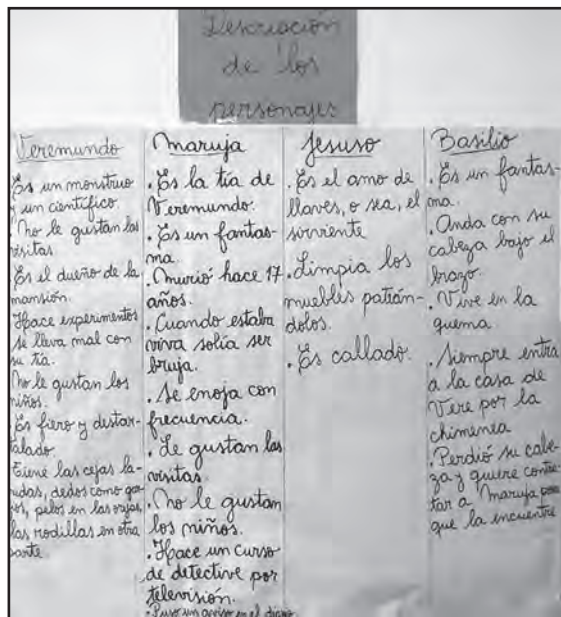 Descripción
de los
personajes
Veremundo
Es un monstruo
y un científico.
No le gustan las
visitas.
Es el dueño de la
mansión.
Hace experimentos
se lleva mal con
su tía.
No le gustan los
niños.
Es fiero y destar-
talado.
Tiene las cejas la-
nudas, dedos como
pelos en las orejas,
las rodillas en otra
parte.
Maruja
. Es la tía de
Veremundo.
. Es un fantas-
ma.
. Murió hace 17
años.
. Cuando estaba
viva solía ser
bruja.
. Se enoja con
frecuencia.
. Le gustan las
visitas.
. No le gustan
los niños.
. Hace un curso
de detective por
televisión.
. Puso un aviso en el diario.
Jesuso
. Es el amo de
llaves, o sea, el
sirviente
. Limpia los
muebles patián-
dolos.
. Es callado.
Basilio
. Es un fantas-
ma.
. Anda con su
cabeza bajo el
brazo.
. Vive en la
quema
. Siempre entra
a la casa de
Vere por la
chimenea
. Perdió su cabe-
za y quiere contra-
tar a Maruja para
que la encuentre